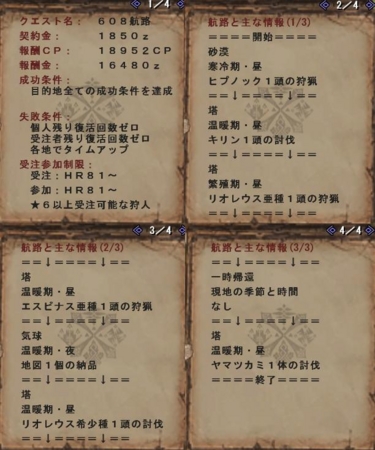 1/4
クエスト名： 608航路
契約金： 1850z
報酬CP： 18952CP
報酬金： 16480z
成功条件：
目的地全ての成功条件を達成
失敗条件：
個人残り復活回数ゼロ
受注者残り復活回数ゼロ
各地でタイムアップ
受注参加制限：
受注：HR81～
参加：HR81～
★6以上受注可能な狩人
2/4
航路と主な情報(1/3)
＝＝＝＝開始＝＝＝＝
砂漠
寒冷期・昼
ヒプノック1頭の狩猟
＝＝↓＝＝＝＝↓＝＝
塔
温暖期・昼
キリン1頭の討伐
＝＝↓＝＝＝＝↓＝＝
塔
繁殖期・昼
リオレウス亜種1頭の狩猟
＝＝↓＝＝＝＝↓＝＝
3/4
航路と主な情報(2/3)
＝＝↓＝＝＝＝↓＝＝
塔
温暖期・昼
エスピナス亜種1頭の狩猟
＝＝↓＝＝＝＝↓＝＝
気球
温暖期・夜
地図1個の納品
＝＝↓＝＝＝＝↓＝＝
塔
温暖期・昼
リオレウス希少種1頭の討伐
＝＝↓＝＝＝＝↓＝＝
4/4
航路と主な情報(3/3)
＝＝↓＝＝＝＝↓＝＝
一時帰還
現地の季節と時間
なし
＝＝↓＝＝＝＝↓＝＝
塔
温暖期・昼
ヤマツカミ1体の討伐
＝＝＝＝終了＝＝＝＝